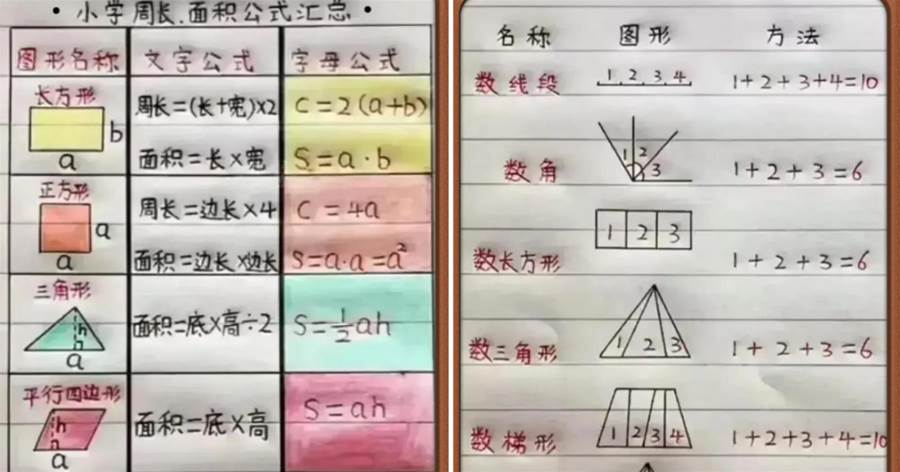 • 小学周长.面积公式汇总 •
图形名称 文字公式 字母公式
长方形
b
a
周长=(长+宽)×2 C=2(a+b)
面积=长×宽 S=a·b
正方形
a
a
周长=边长×4 C=4a
面积=边长×边长 S=a·a=a²
三角形
h
a
面积=底×高÷2 S=½ah
平行四边形
h
a
面积=底×高 S=ah
名称 图形 方法
数线段 1 2 3 4 1+2+3+4=10
数角 1 2 3 1+2+3=6
数长方形 1 2 3 1+2+3=6
数三角形 1 2 3 1+2+3=6
数梯形 1 2 3 4 1+2+3+4=10